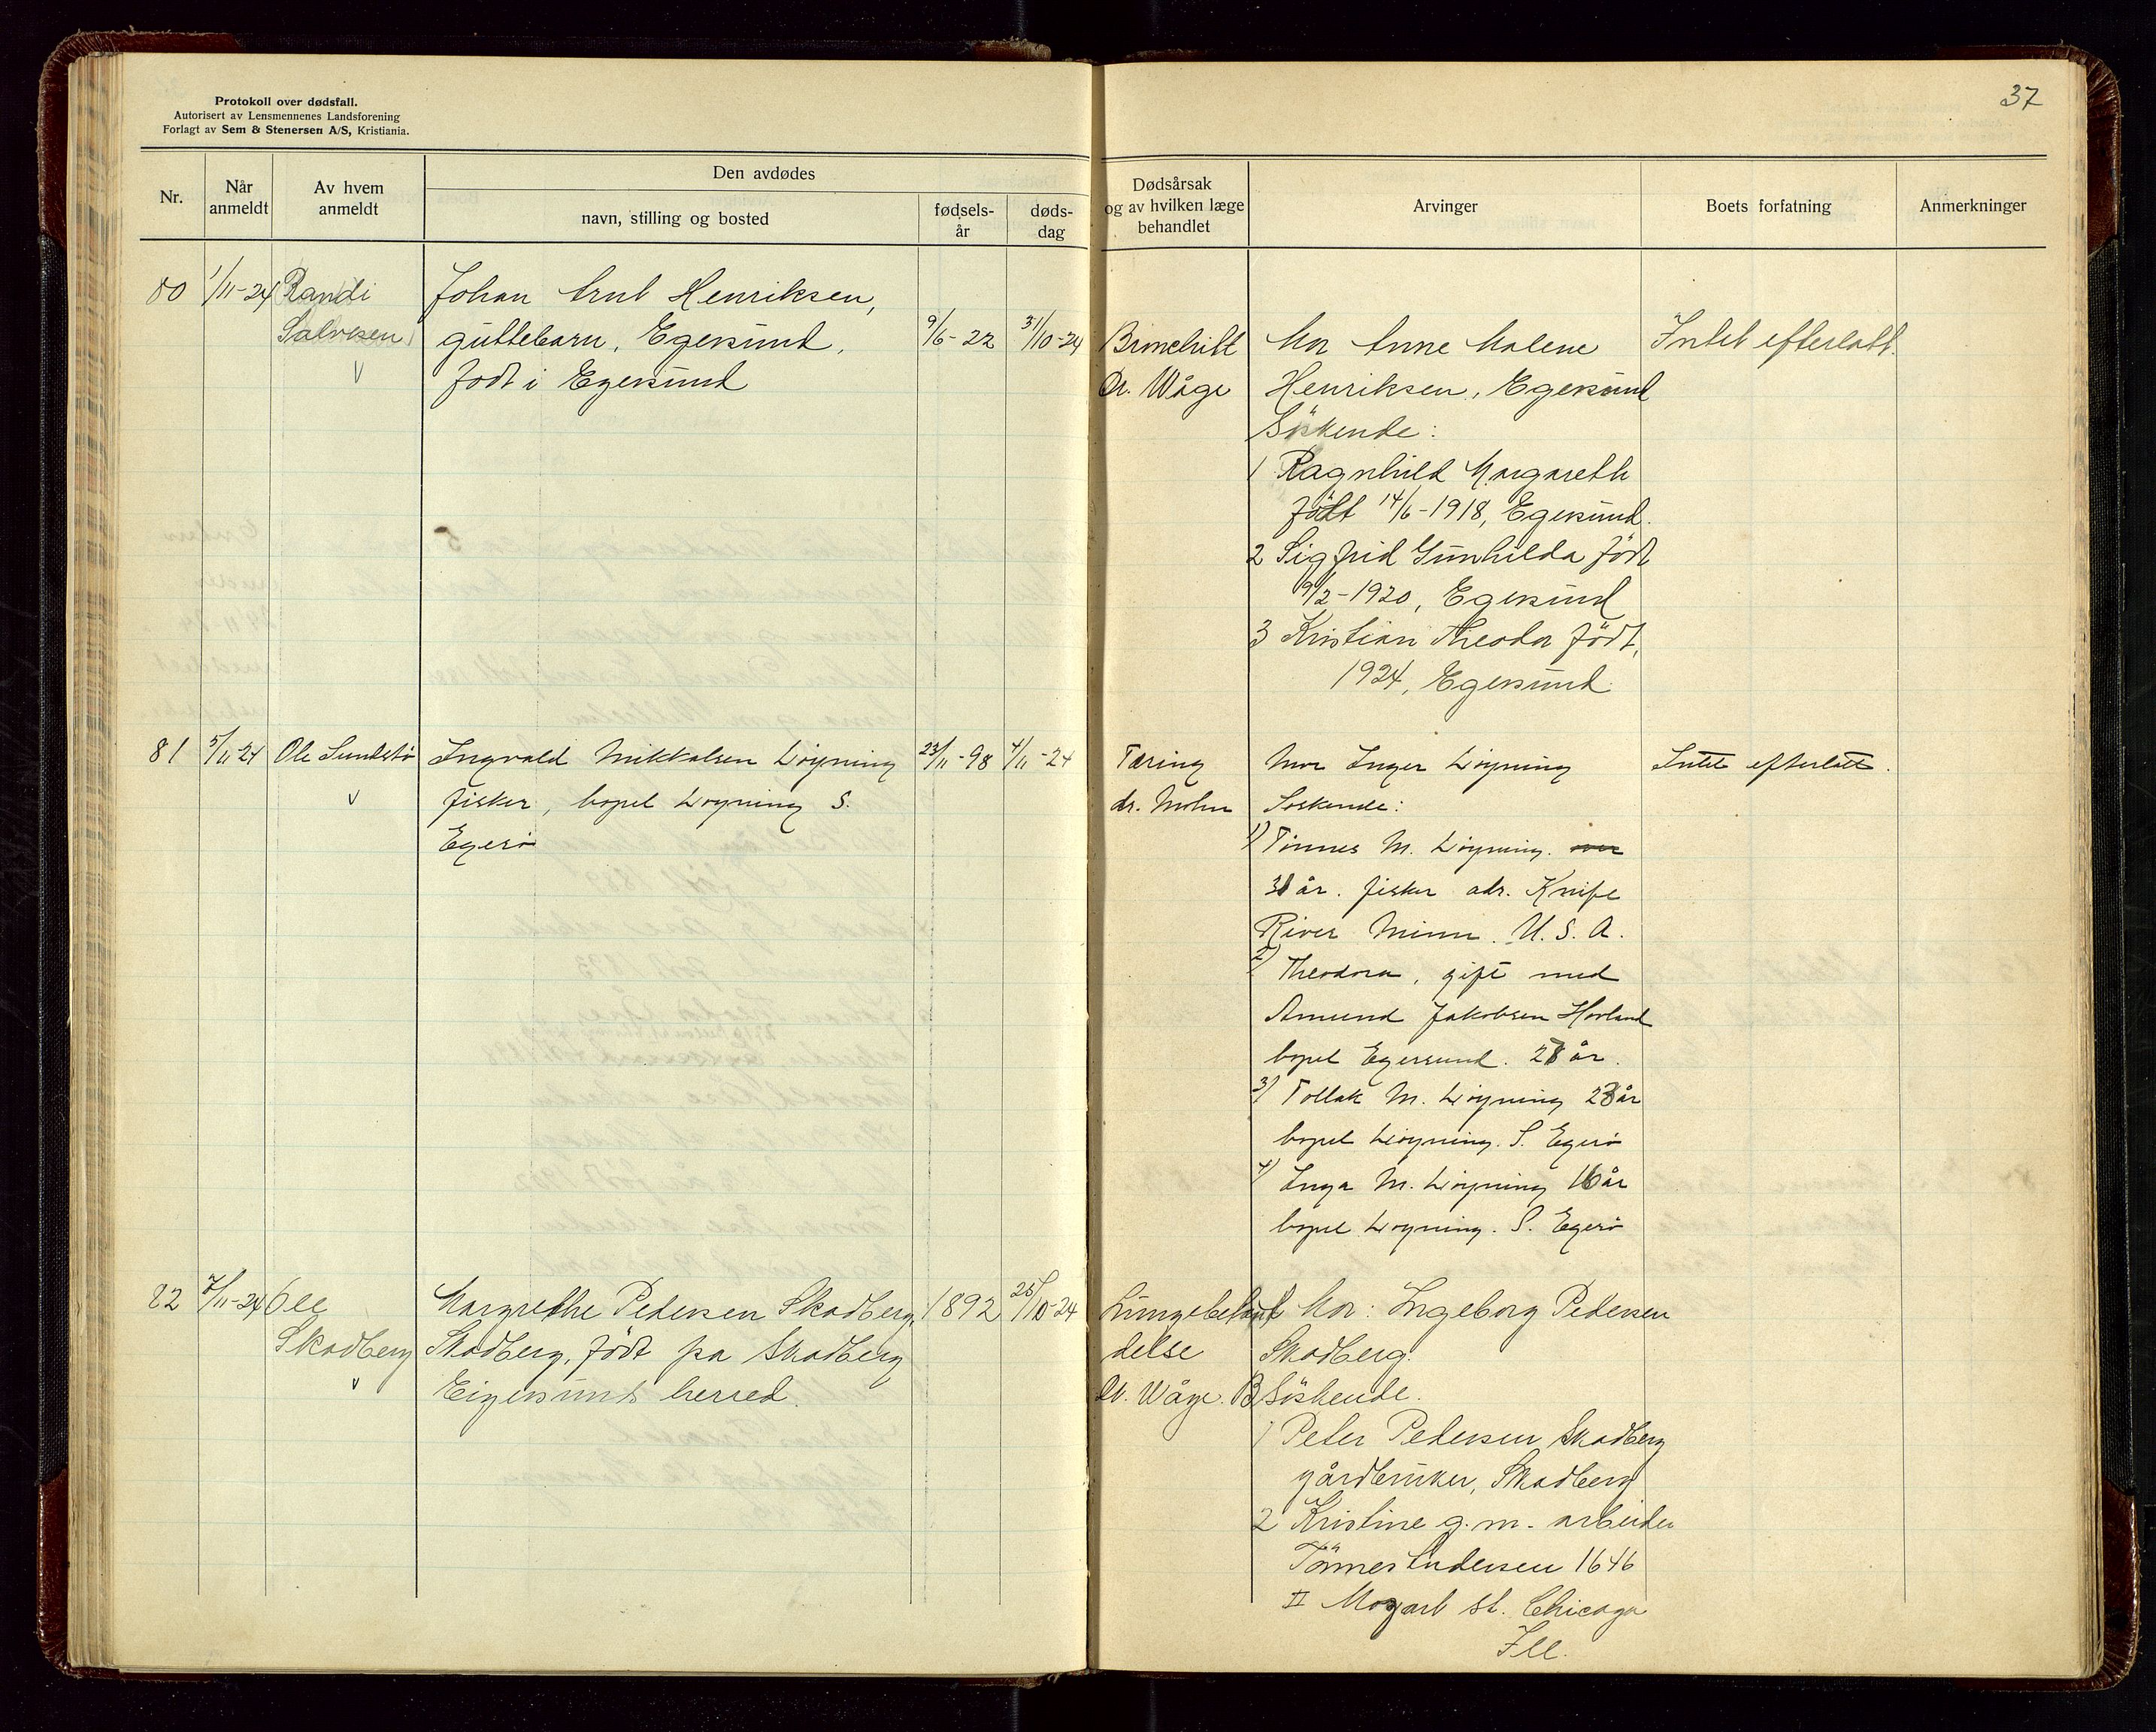 Protokoll over dødsfall.
Autorisert av Lensmennenes Landsforening
Forlagt av Sem & Stenersen A/S, Kristiania.
37
Nr.
Når anmeldt
Av hvem anmeldt
Den avdødes
navn, stilling og bosted
fødsels-år
døds-dag
Dødsårsak og av hvilken læge behandlet
Arvinger
Boets forfatning
Anmerkninger
80 1/11-24 Randi
Salvesen
Johan Arnt Henriksen,
guttebarn, Egersund,
født i Egersund
9/6-22 31/10-24
Dr. Wåge
Mor Anne Malene
Henriksen, Egersund
Söskende:
1 Ragnhild Margareth
født 14/6-1918, Egersund.
2 Sigfrid Gunhilda født
9/2-1920, Egersund
3 Kristian Theodor født,
1924, Egersund
Intet efterlatt.
81 5/11-24 Ole Sundstø
Ingvald Mikkalsen Løyning
fisker, bopel Løyning S.
Egerø
23/11-98 4/11-24
Tæring
dr. Mohn
Mor Inger Løyning
Søskende:
1) Tønnes M. Løyning.
31 år. fisker adr. Knife
River Minn. U.S.A.
2) Theodora, gift med
Amund Jakobsen Hovland
bopel Egersund. 28 år.
3) Tollak M. Løyning 23 år
bopel Løyning. S. Egerø
4) Inga M. Løyning 16 år
bopel Løyning. S. Egerø
Intet efterlatt.
82 7/11-24 Ole
Skadberg
Margrethe Pedersen Skadberg,
Skadberg, født pa Skadberg
Eigersunds herred.
1892 25/10-24
Lungebetæn
delse
Dr. Wåge.
Mor: Ingeborg Pedersen
Skadberg.
B Söskende.
1 Peter Pedersen Skadberg
gårdbruker, Skadberg
2 Kristine g.m. arbeider
Tönnes Andersen 1646
II Mozart st. Chicago
Ill.